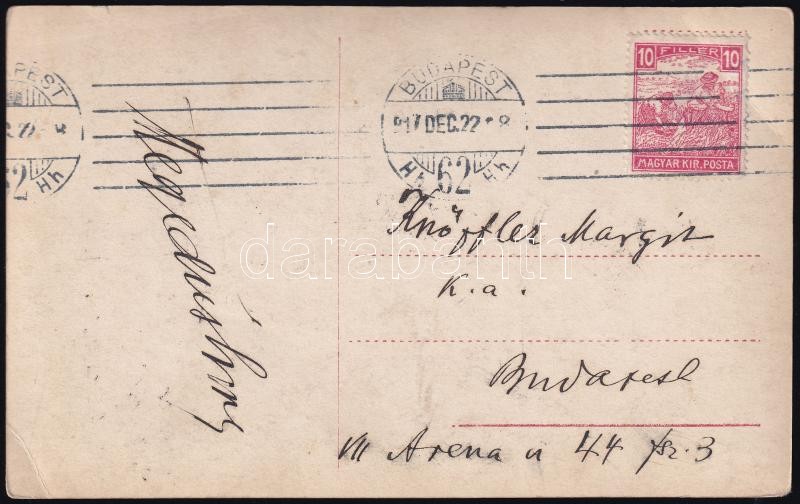 BUDAPEST
917 DEC.22
Hh 62 Hh
10 FILLÉR 10
MAGYAR KIR. POSTA
Knöffler Margit
k.a.
Budapest
VII Arena u 44 fsz. 3
darabanth